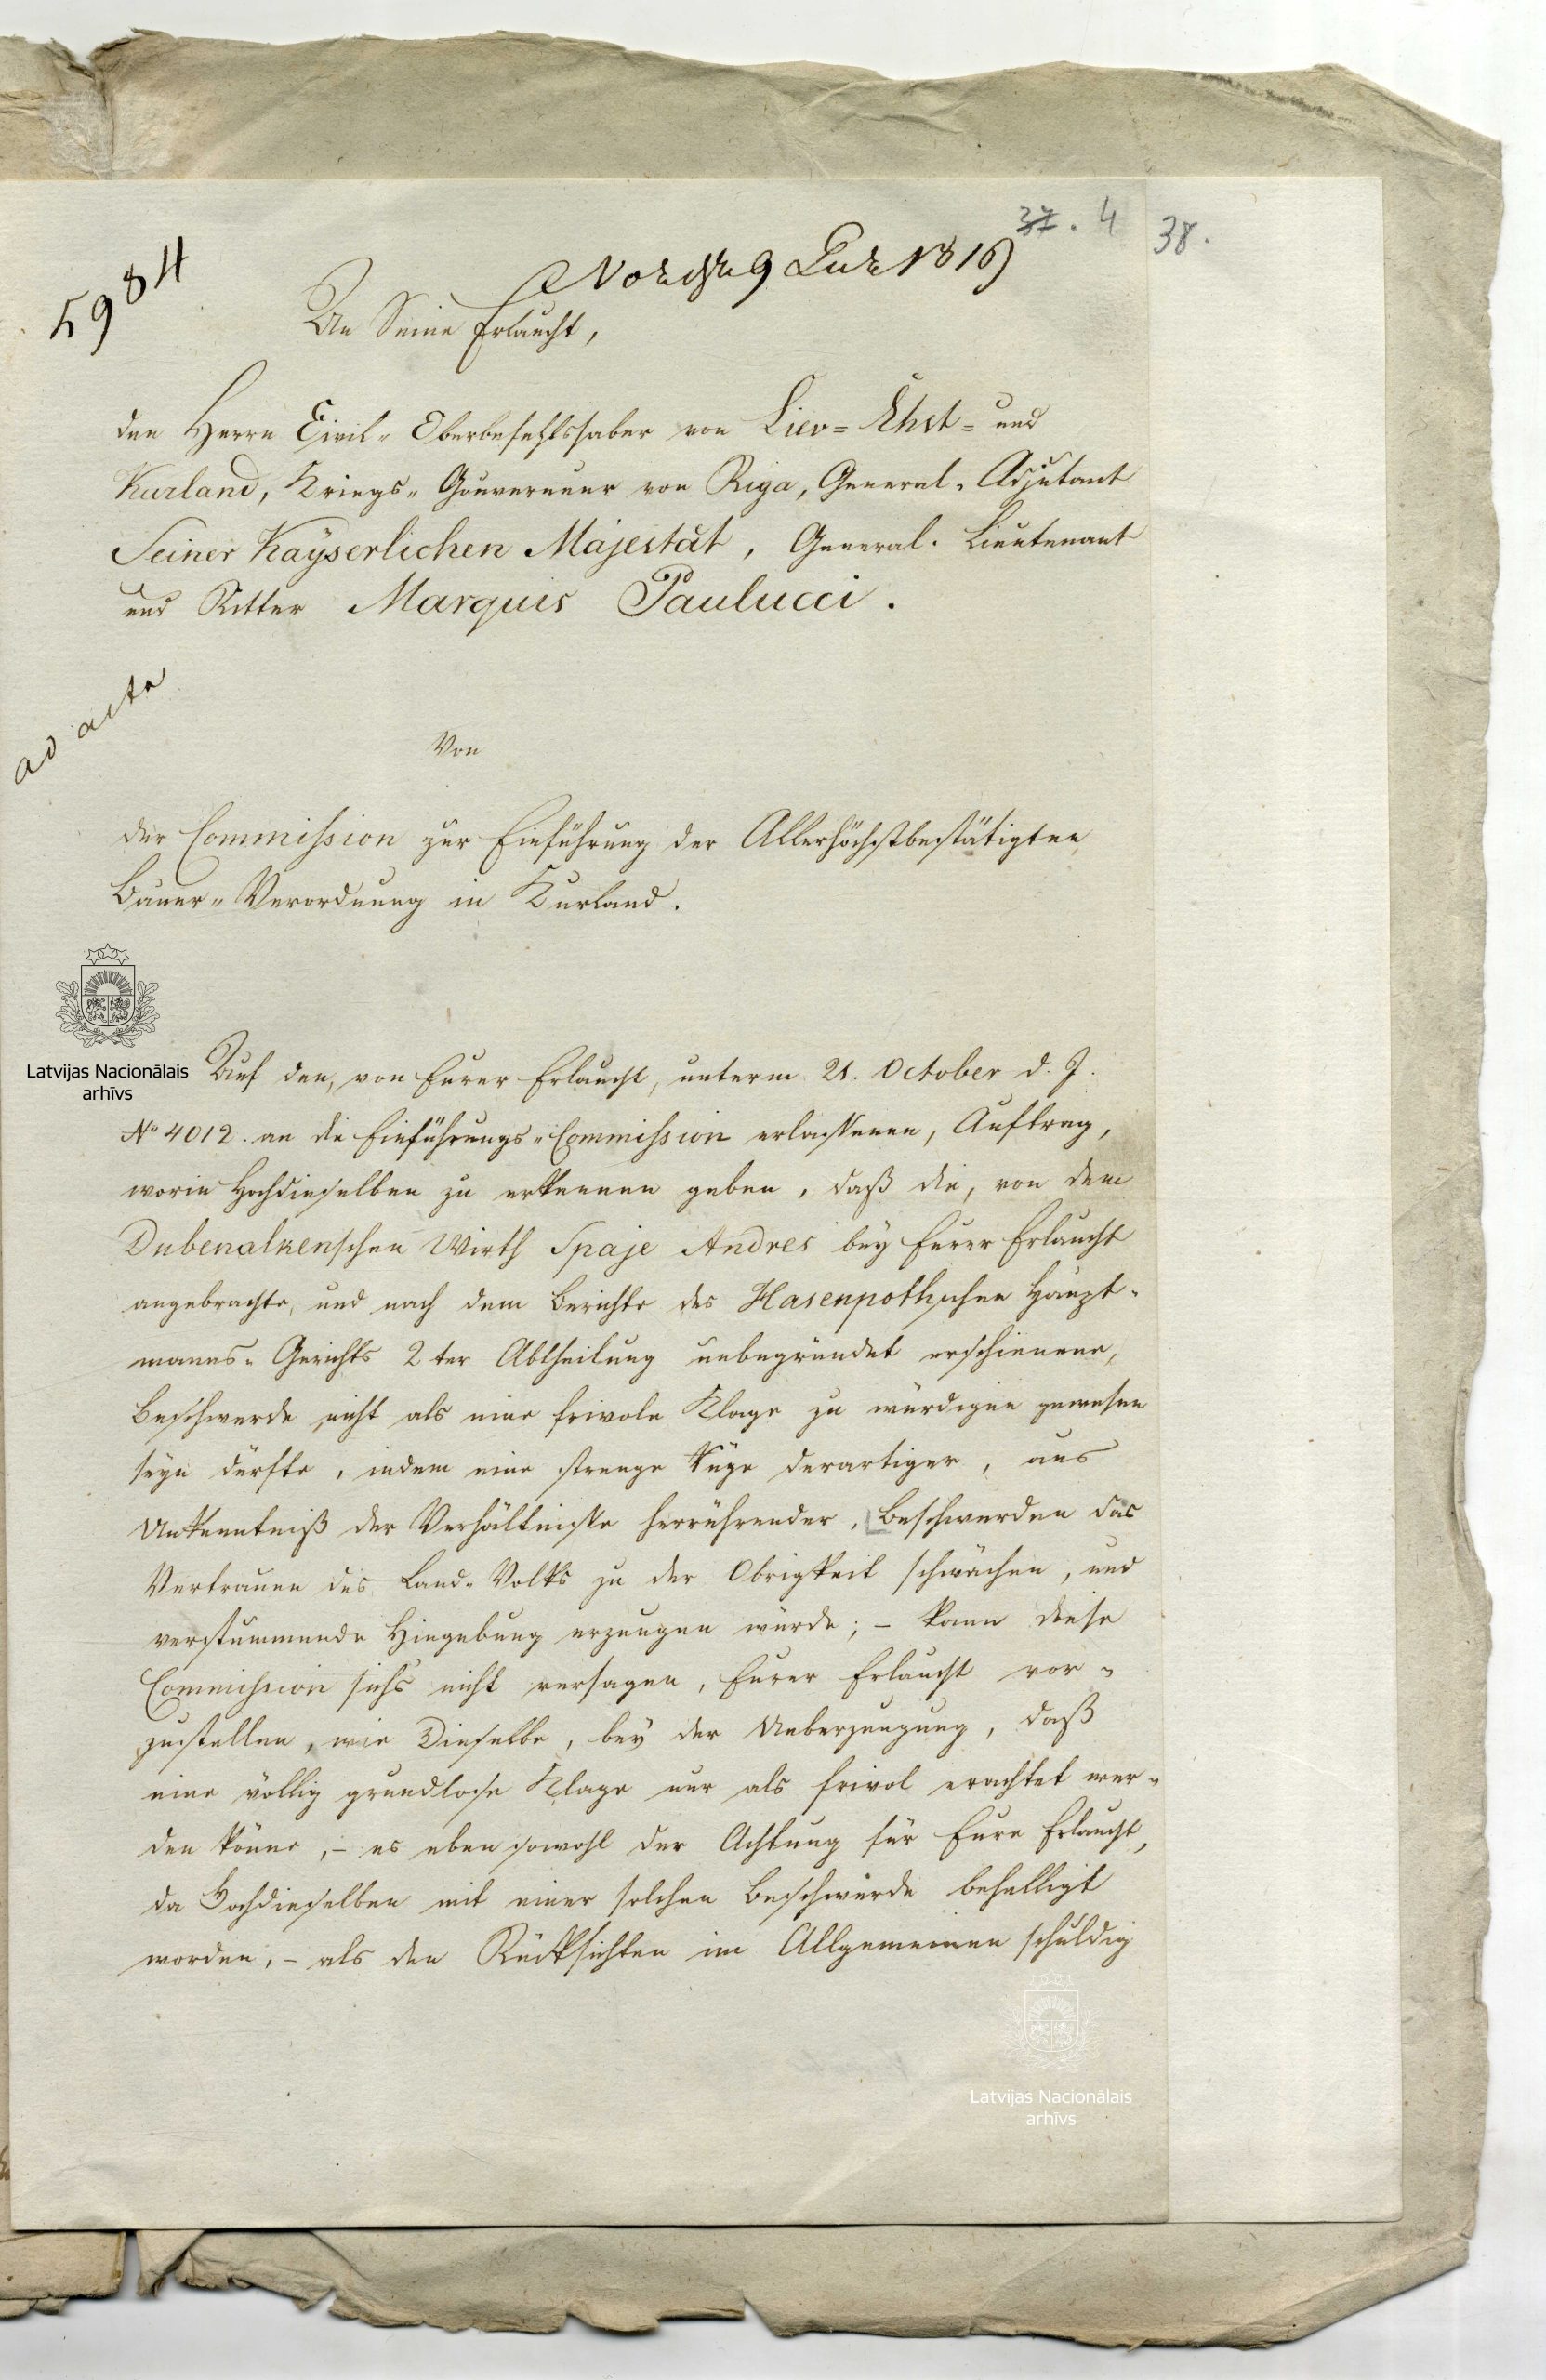 37. 4
38.
5984
1819
An Seine Erlaucht,
den Herrn Civil-Oberbefehlshaber von Liev- Ehst- und
Kurland, Kriegs-Gouverneur von Riga, General-Adjutant
Seiner Kayserlichen Majestät, General-Lieutenant
und Ritter Marquis Paulucci.
ad acta
Von
der Commission zur Einführung der Allerhöchstbestätigten
Bauer-Verordnung in Kurland.
Latvijas Nacionālais
arhīvs
Auf den, von Eurer Erlaucht, unterm 21. October d. J.
No 4012. an die Einführungs-Commission erlassenen, Auftrag,
worin Hochdieselben zu erkennen geben, daß die, von dem
Dubenalkenschen Wirth Spaje Andres bey Eurer Erlaucht
angebrachte, und nach dem Berichte des Hasenpothschen Haupt-
manns-Gerichts 2ter Abtheilung unbegründet erschienene,
Beschwerde nicht als eine frivole Klage zu würdigen gewesen
seyn dürfte, indem eine strenge Rüge derartiger, aus
Unkenntniß der Verhältnisse herrührender, Beschwerden das
Vertrauen des Land-Volks zu der Obrigkeit schwächen, und
verstummende Hingebung erzeugen würde; – kann diese
Commission sichs nicht versagen, Eurer Erlaucht vor-
zustellen, wie Dieselbe, bey der Ueberzeugung, daß
eine völlig grundlose Klage nur als frivol erachtet wer-
den könne, – es eben sowohl der Achtung für Eure Erlaucht,
da Hochdieselben mit einer solchen Beschwerde behelligt
worden, – als den Rücksichten im Allgemeinen schuldig
Latvijas Nacionālais
arhīvs